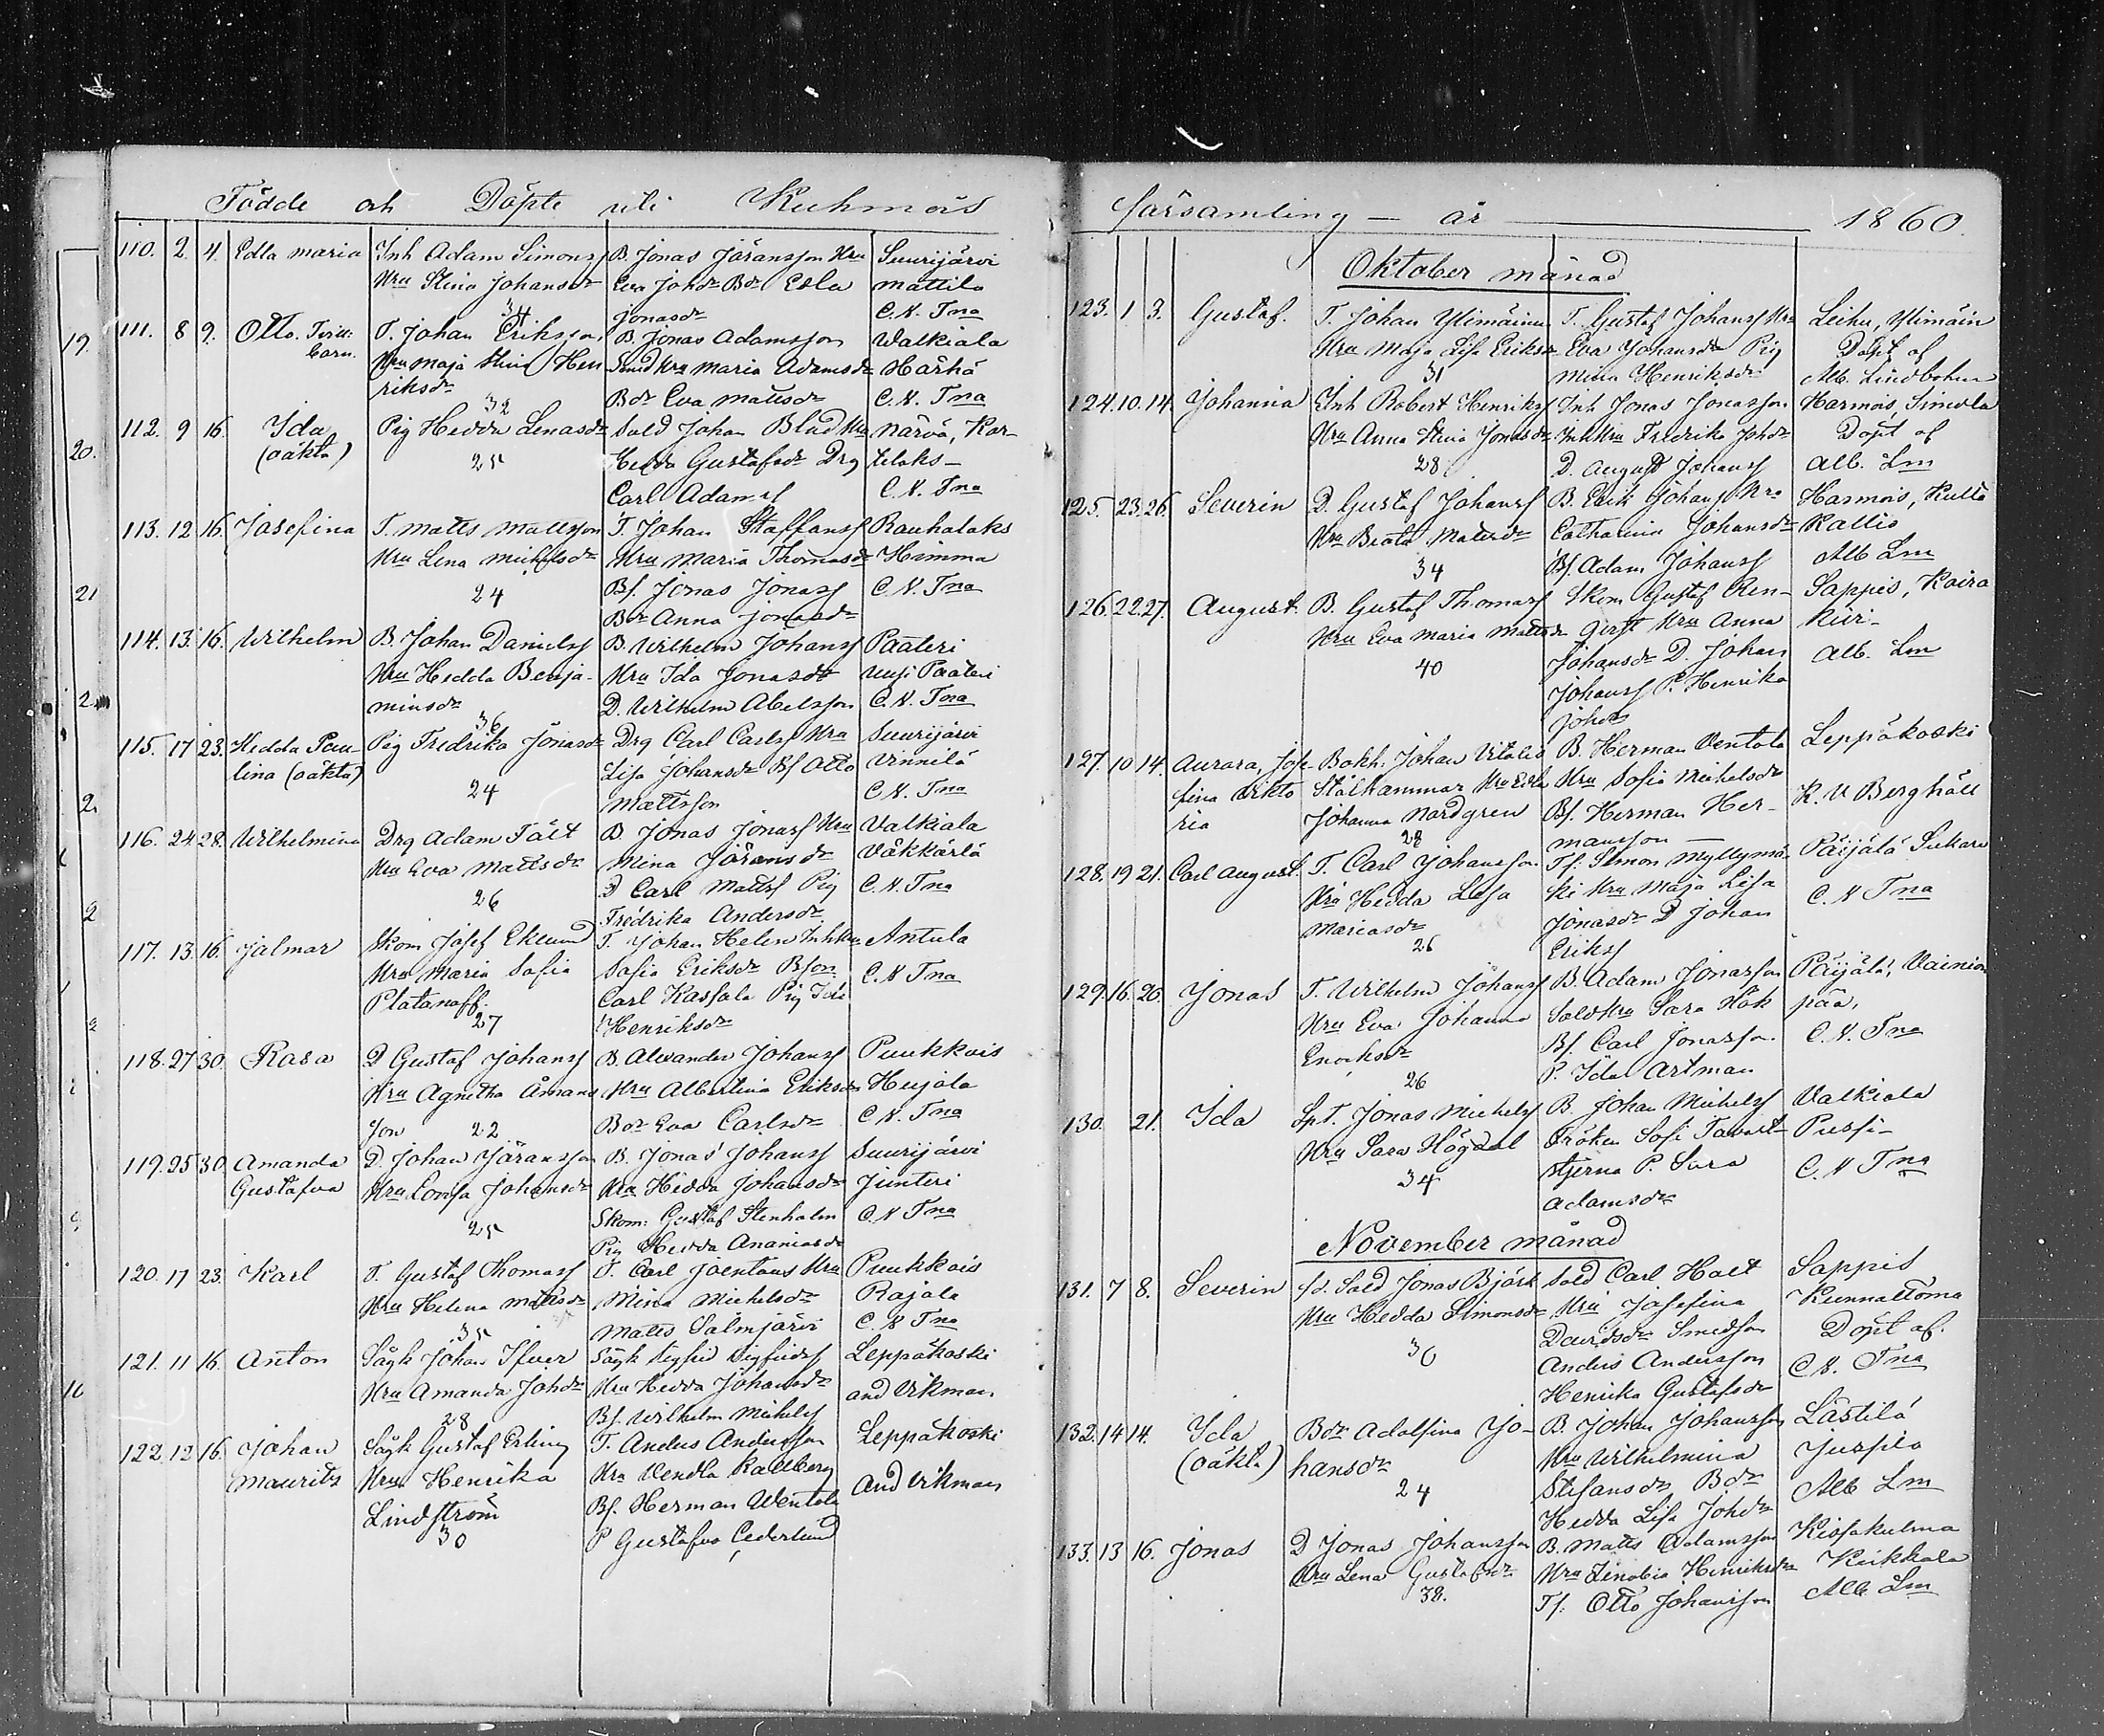 Födde och Döpte uti Kuhmois
110. 2. 4. Edla Maria Inh Adam Simonss B. Jonas Jöransson Hru Suurijärvi
Hru Stina Johansdr Eva Johdr Bdr Edla Mattila
34 Jonasdr C. N. Tna
111. 8 9. Otto. T. Johan Eriksson B. Jonas Adamsson Walkiala
Hru Maja Stina Hen Hru Maria Adamsdr Härhä
riksdr 32 Bdr Eva Mattsdr C. N. Tna
112. 9 16. Ida Pig Hedda Lenasdr Sold Johan Blad Hru Närvä, Kor-
(oäkta) 25 Hedda Gustafsdr Drg telaks-
Carl Adamss C. N. Tna
113. 12 16. Josefina T. Matts Mattsson T. Johan Staffanss Rauhalaks
Hru Lena Michelsdr Hru Maria Thomasdr Himma
24 Bs. Jonas Jonass C. N. Tna
Bdr Anna Jonasdr
114. 13. 16. Wilhelm B. Johan Danielss B. Wilhelm Johanss Paateri
Hru Hedda Benja- Hru Ida Jonasdr Uusi Paateri
minsdr 36 D. Wilhelm Abelsson C. N. Tna
115. 17 23. Hedda Pau- Pig Fredrika Jonasdr Drg Carl Carlss Hru Suurijärvi
lina (oäkta) Lisa Johansdr Bs Otto Vinnilä
24 Mattsson C. N. Tna
116. 24. 28. Wilhelmina Drg Adam Fält B. Jonas Jonass Hru Valkiala
Hru Eva Mattsdr Mina Jöransdr Väkkärlä
26 D Carl Mattss Pig C. N. Tna
Fredrika Andersdr
117. 13. 16. Jalmar Skom Josef Eklund T. Johan Helen Inhhu Antula
Hru Maria Sofia Sofia Eriksdr Bson C. N Tna
Platanoff. 27 Carl Kassala Pig
Henriksdr
118. 27 30. Rosa D Gustaf Johanss B. Alexander Johanss Puukkois
Hru Agnetha Ämans Hru Albertina Eriksdr Heijala
son 22 Bdr Eva Carlsdr C. N. Tna
119. 25 30. Amanda D. Johan Jöransson B. Jonas Johanss Suurijärvi
Gustafva Hru Lovisa Johansdr Hru Hedda Johansdr Junteri
25 Skom: Gustaf Stenholm C. N Tna
Pig Hedda Ananiasdr
120. 17 23. Karl T. Gustaf Thomass T. Carl Joentaus Hru Puukkois
Hru Helena Mattsdr Mina Michelsdr Rajala
35 Matts Salmjärvi C. N Tna
121. 11 16. Anton Sågk Johan Ifver Sågk Sigfrid Sigfridss Leppäkoski
Hru Amanda Johdr Hru Hedda Johansdr And Vikman
28 Bs. Wilhelm Michelss
122. 12 16. Johan Sågk Gustaf Erling T. Anders Andersson Leppäkoski
Maurits Hru Henrika Hru Vendla Kallberg And Vikman
Lindström Bs. Herman Wentola
30 P Gustafva Cederlund
församling — år 1860.
Oktober månad
123. 1 3. Gustaf. T. Johan Ylimäinen T. Gustaf Johanss Hru Leihu, Ylimäin
Hru Maja Lisa Eriksdr Eva Johansdr Pig Döpt af
31 Mina Henriksdr Alb. Lindbohm
124. 10. 14. Johanna Inh Robert Henrikss Inh Jonas Jonasson Harmois, Simola
Hru Anna Stina Jonasdr Inhhru Fredrika Johdr Döpt af
28 D. August Johanss Alb. Lm
125. 23. 26. Severin D. Gustaf Johanss B. Erik Johanss Hru Harmois, Kulta
Hru Beata Mattsdr Catharina Johansdr Kallio
34 Bs. Adam Johanss Alb Lm
126. 22. 27. August. B. Gustaf Thomass Skom Gustaf Ren- Sappis, Koira
Hru Eva Maria Mattsdr qvist Hru Anna Kivi-
40 Johansdr D. Johan Alb. Lm
Johanss P. Henrika
Johdr
127. 10 14. Aurora, Jose- Bokh. Johan Vitalis B. Herman Ventola Leppäkoski
fina Vikto Stålhammar Hru Edla Hru Sofia Michelsdr
ria Johanna Nordgren Bs. Herman Her- K. U Berghäll
28 mansson —
128. 19 21. Carl August. T. Carl Johansson Ts. Simon Myllymä- Päijälä Sukara
Hru Hedda Lisa ki Hru Maja Lisa C. N Tna
Mariasdr Jonasdr D Johan
26 Erikss
129. 16. 20. Jonas T. Wilhelm Johanss B. Adam Jonasson Päijälä, Vainion
Hru Eva Johanna Soldhru Sara Hök pää,
Enoksdr Bs. Carl Jonasson C. N. Tna
26 P. Ida Artman
130. 21. Ida Spt. Jonas Michelss B. Johan Michelss Valkiala
Hru Sara Högdal Fröken Sofi Tavast- Pussi-
34 stjerna P. Sara C. N Tna
Adamsdr
November månad
131. 7 8. Severin fd. Sold Jonas Björk Sold Carl Halt Sappis
Hru Hedda Simonsdr Hru Josefina Kunnattoma
30 Davidsdr Smedson Döpt af.
Anders Andersson C N. Tna
Henrika Gustafsdr
132. 14 14. Ida Bdr Adolfina Jo- B. Johan Johansson Lästilä
(oäkta) hansdr Hru Wilhelmina Juspila
24 Stefansdr Bdr Alb Lm
Hedda Lisa Johdr
133. 13 16. Jonas D Jonas Johansson B. Matts Adamsson Kissakulma
Hru Lena Gustafsdr Hru Zenobia Henriksdr Keikkala
38. Ts. Otto Johansson Alb Lm